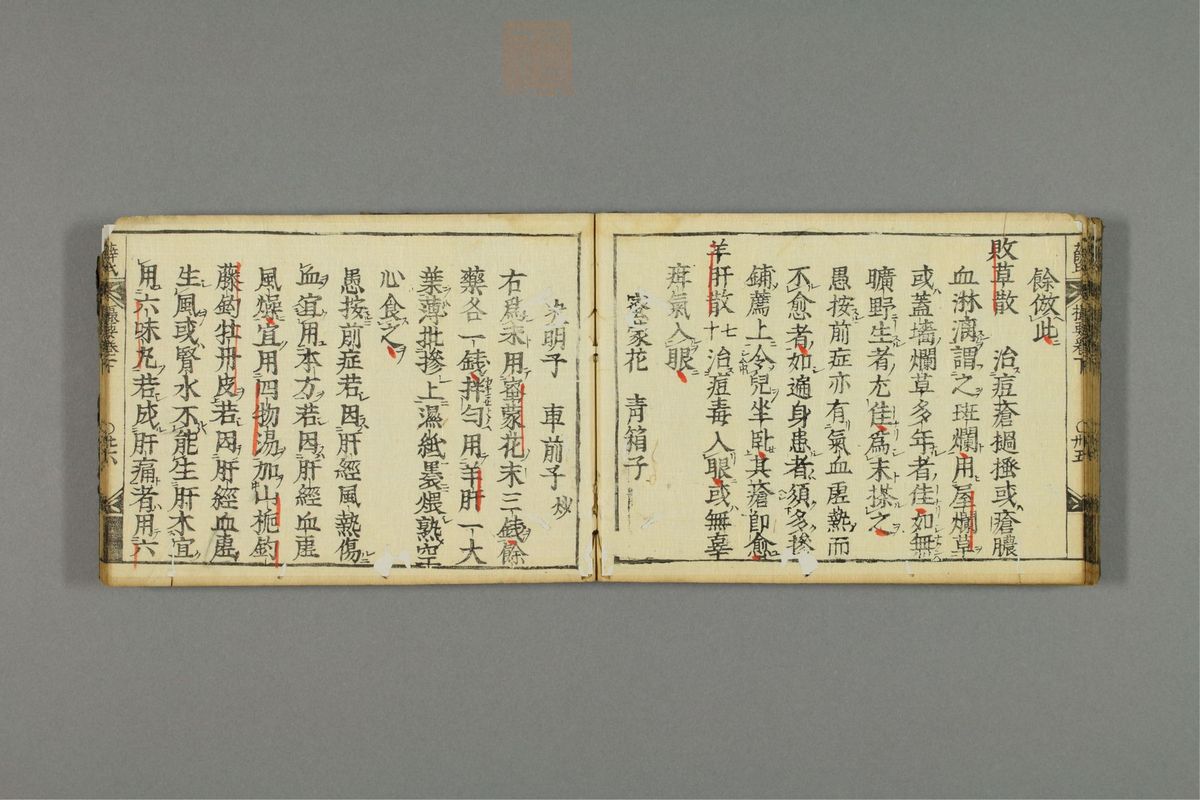 餘倣此
敗草散 治痘瘡撾搔或瘡膿
血淋漓謂之斑爛用屋爛草
或蓋墻爛草多年者佳如無
曠野生者尤佳為末搽之
愚按前症亦有氣血虛熱而
不愈者如遍身患者須多摻
鋪薦上令兒坐臥其瘡即愈
羊肝散 十七 治痘毒入眼或無辜
疳氣入眼
密蒙花 青箱子
決明子 車前子 炒
右為末用蜜蒙花末三錢餘
藥各一錢拌勻用羊肝一大
葉薄批摻上濕紙裹煨熟空
心食之
愚按前症若因肝經風熱傷
血宜用本方若因肝經血虛
風燥宜用四物湯加山梔鈎
藤鈎牡丹皮若因肝經血虛
生風或腎水不能生肝木宜
用六味丸若成肝痛者用六